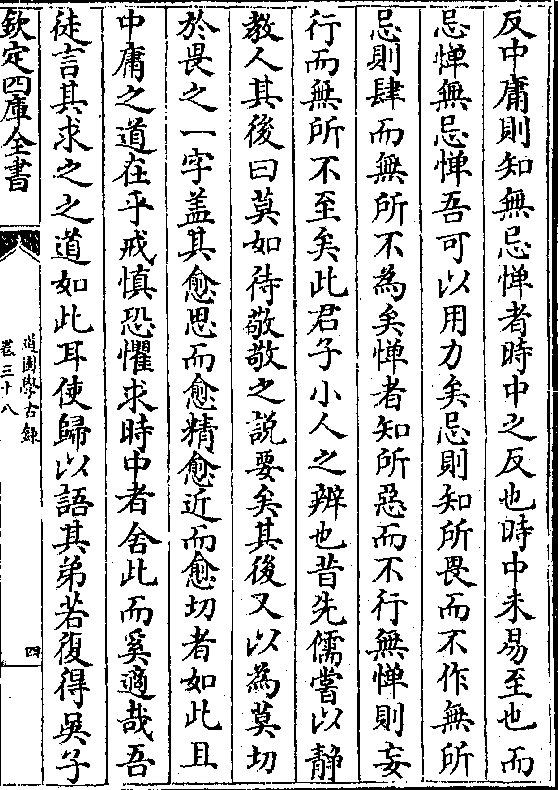 反中庸則知無忌憚者時中之反也時中未易至也而
忌憚無忌憚吾可以用力矣忌則知所畏而不作無所
忌則肆而無所不為矣憚者知所惡而不行無憚則妄
行而無所不至矣此君子小人之辨也昔先儒嘗以靜
教人其後曰莫如待敬敬之說要矣其後又以為莫切
於畏之一字盖其愈思而愈精愈近而愈切者如此且
中庸之道在乎戒慎恐懼求時中者舍此而奚適哉吾
徒言其求之之道如此耳使歸以語其弟若復得吳子
欽定四庫全書
道園學古錄
卷三十八
四